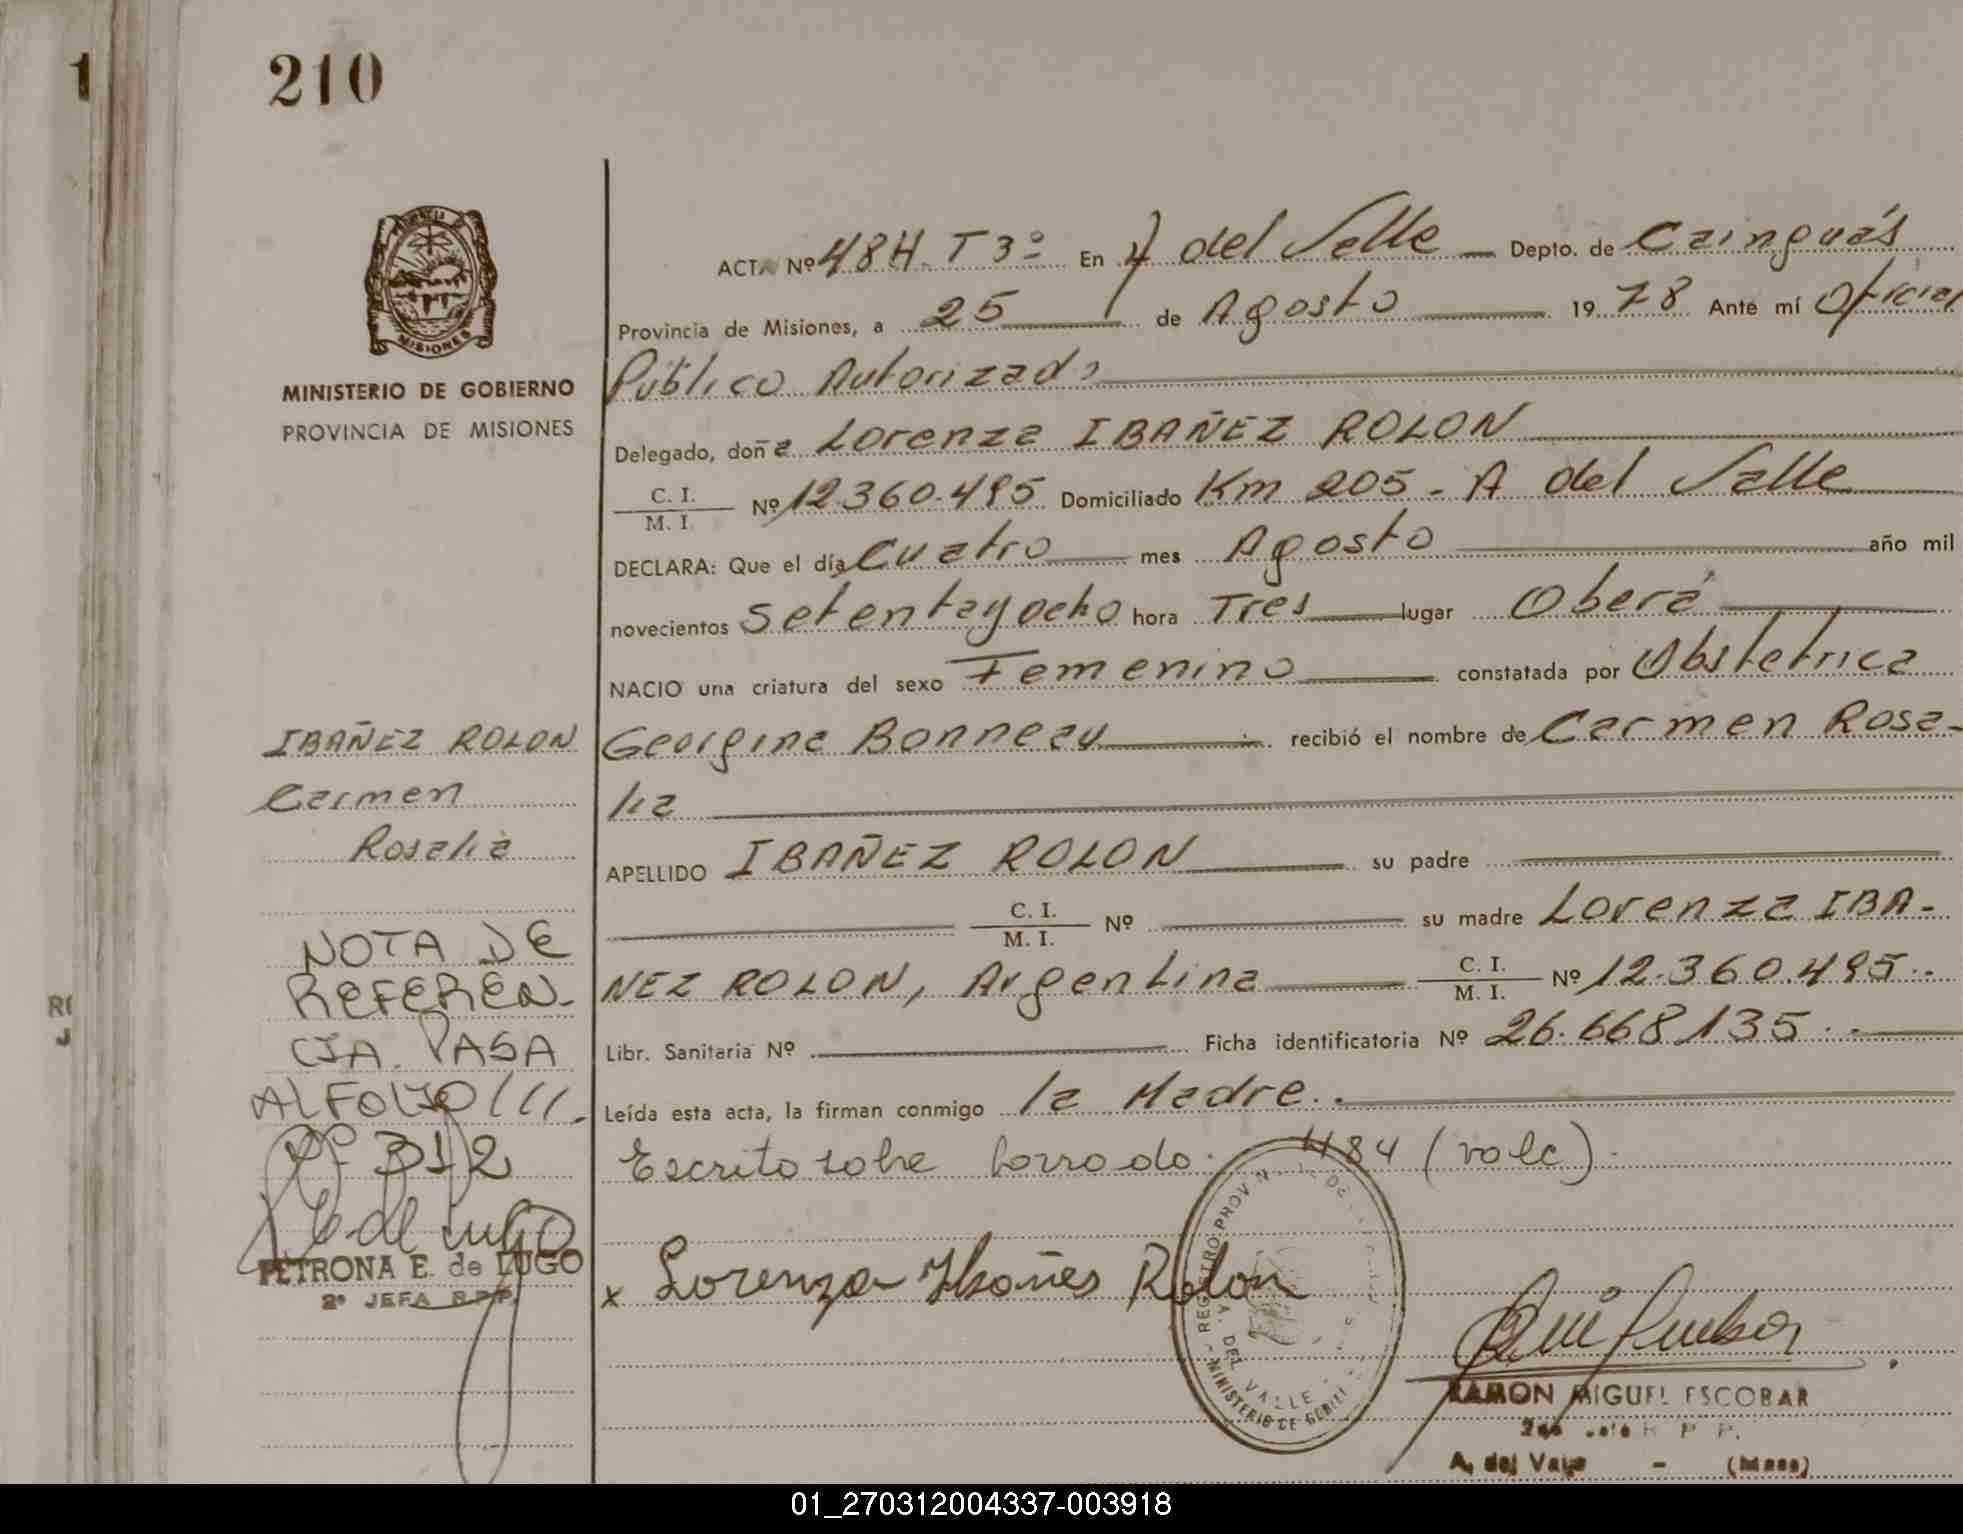 1
210
PROVINCIA
MISIONES
MINISTERIO DE GOBIERNO
PROVINCIA DE MISIONES
ACTA Nº 484. T 3º En A del Valle Depto. de Cainguás
Provincia de Misiones, a 25 de Agosto 1978 Ante mí Oficial
Público Autorizado
Delegado, doña Lorenza IBAÑEZ ROLON
C. I.
M. I. Nº 12.360.495 Domiciliado Km 205 - A del Valle
DECLARA: Que el día Cuatro mes Agosto año mil
novecientos Setentayocho hora Tres lugar Oberá
NACIO una criatura del sexo Femenino constatada por Obstetrica
Georgina Bonneau recibió el nombre de Carmen Rosa-
lia
APELLIDO IBAÑEZ ROLON su padre
C. I.
M. I. Nº su madre Lorenza IBA-
ÑEZ ROLON, Argentina C. I.
M. I. Nº 12.360.495.-
Libr. Sanitaria Nº Ficha identificatoria Nº 26.668.135.-
Leída esta acta, la firman conmigo la Madre.-
Escrito sobre borrado: 484 (vale).
x Lorenza Ibañes Rolon
IBAÑEZ ROLON
Carmen
Rosalia
NOTA DE
REFEREN-
CIA. PASA
AL FOLIO
Nº 312
PETRONA E. de LUGO
2º JEFA R.P.P.
REGISTRO PROVIN DE
A. DEL VALLE
MINISTERIO DE GOBIE
RAMON MIGUEL ESCOBAR
R P P.
A. del Valle - (Mnes)
01_270312004337-003918